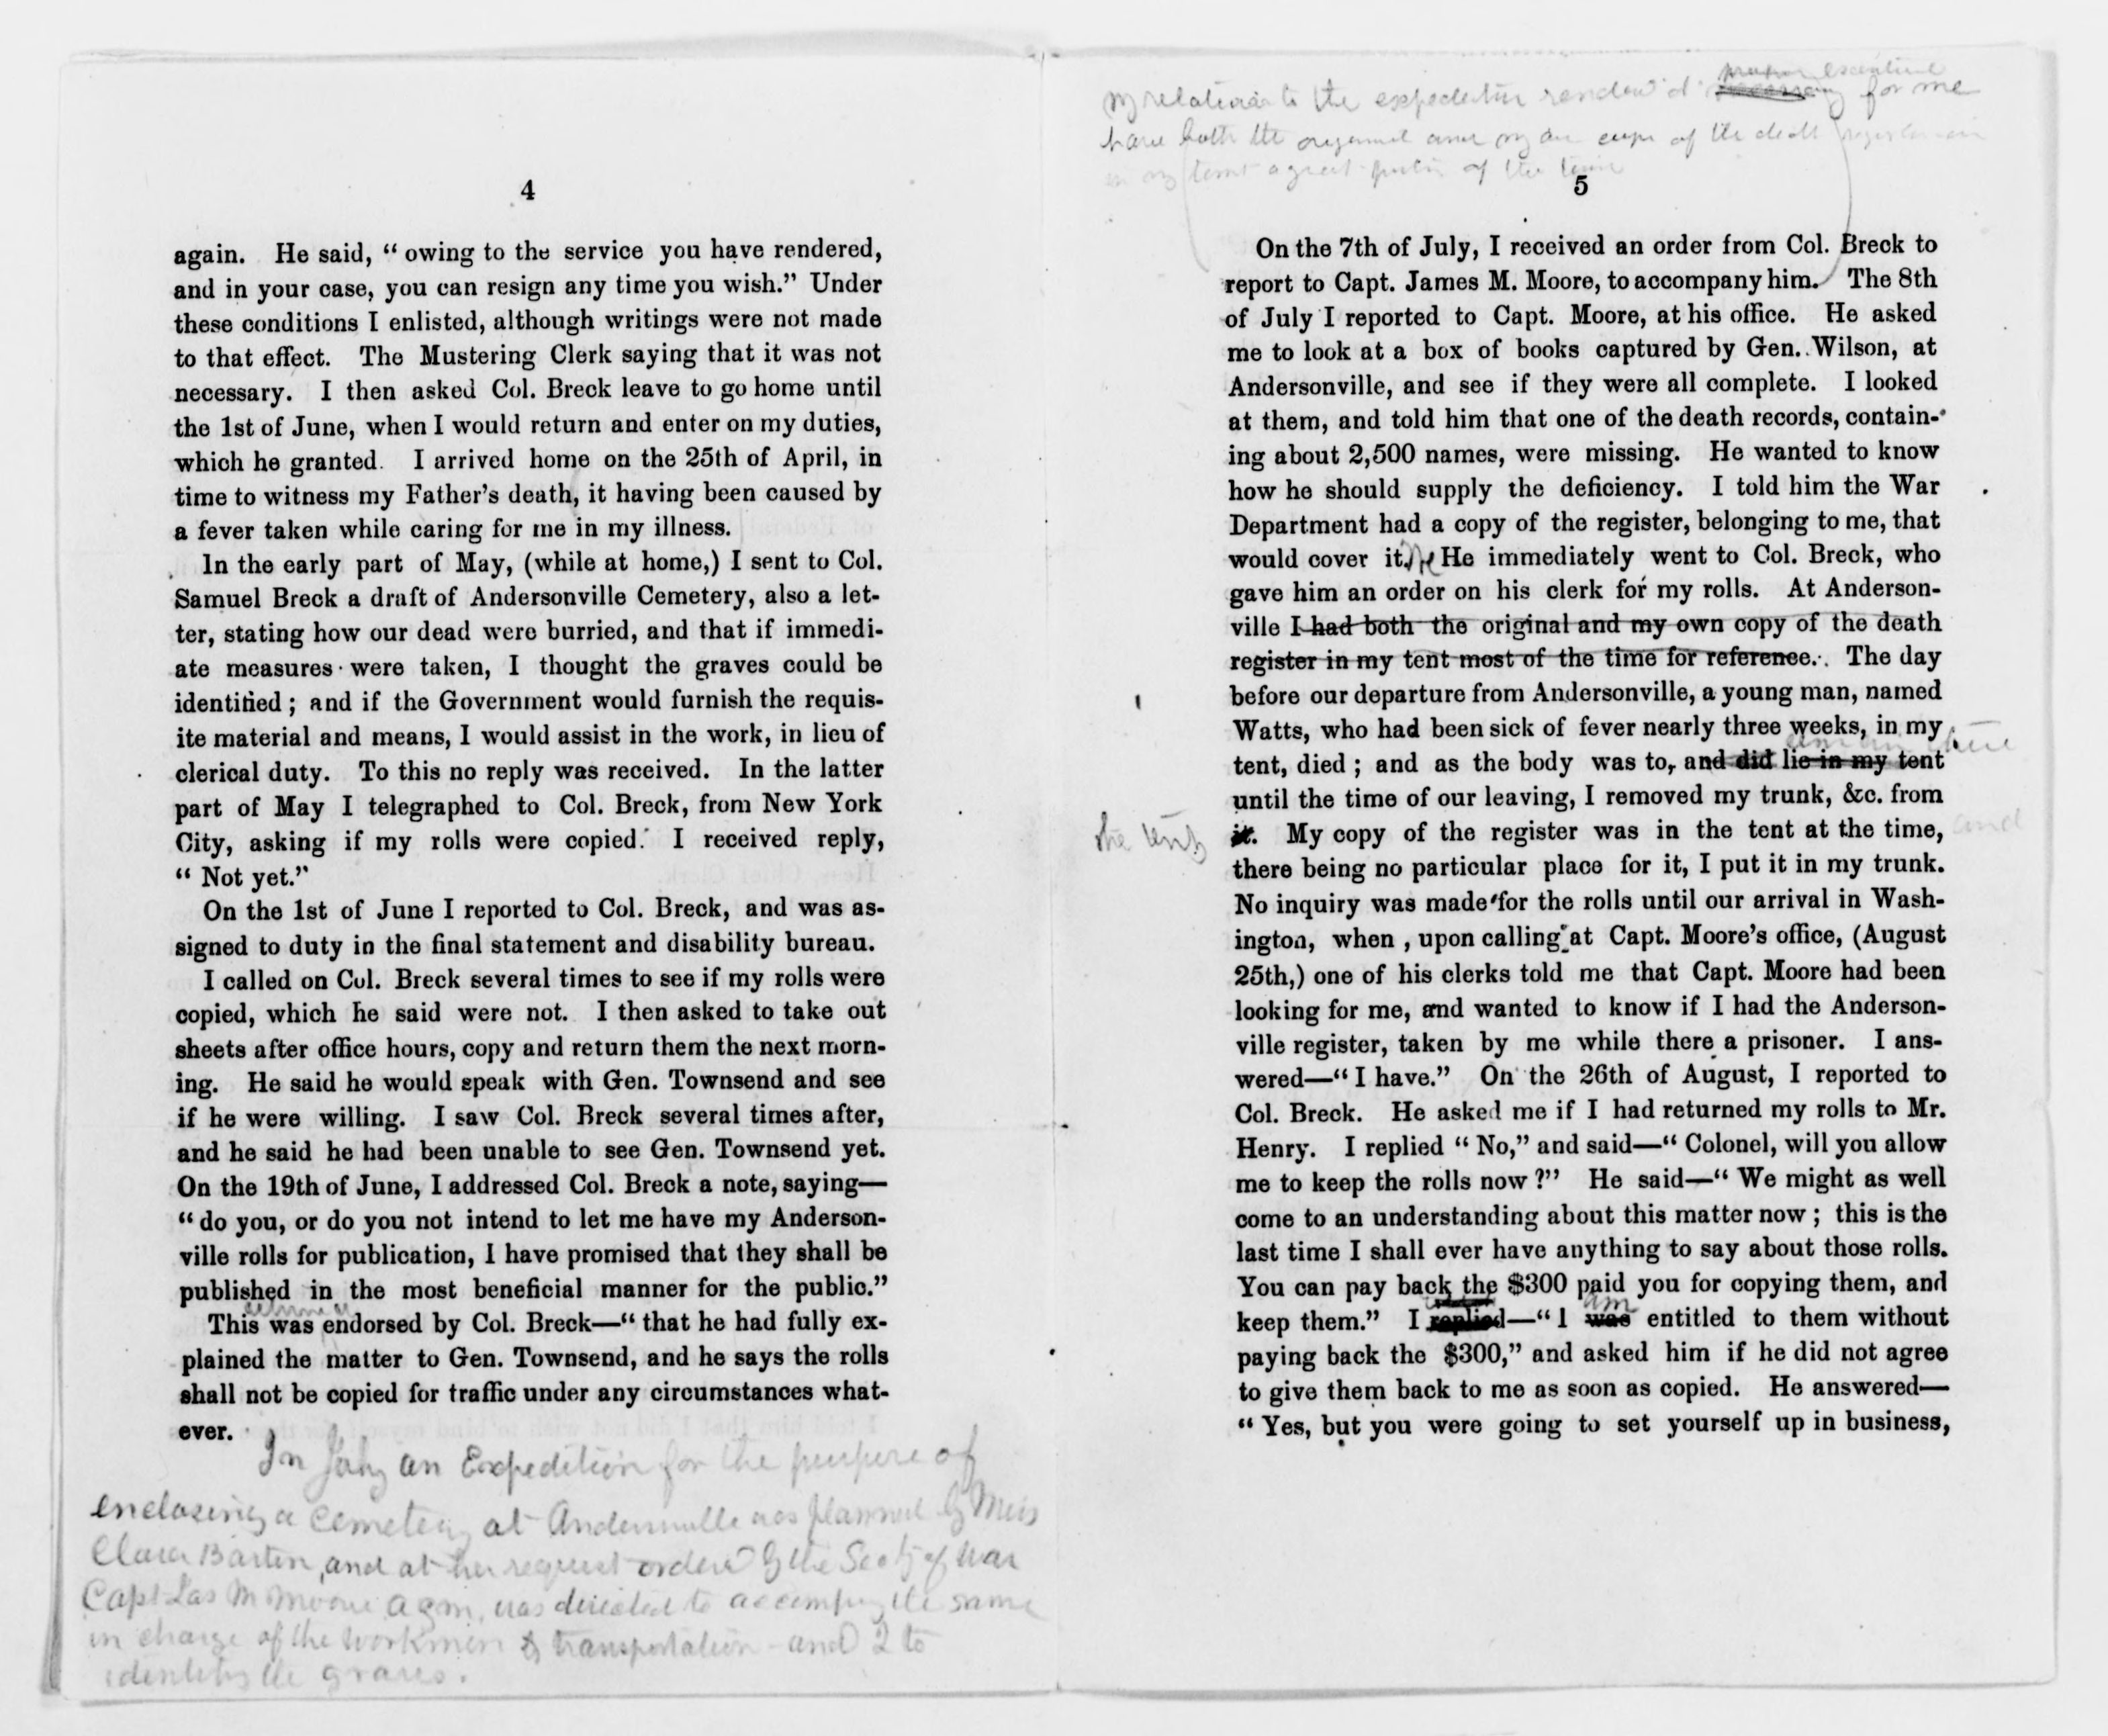 4
again. He said, “ owing to the service you have rendered,
and in your case, you can resign any time you wish.” Under
these conditions I enlisted, although writings were not made
to that effect. The Mustering Clerk saying that it was not
necessary. I then asked Col. Breck leave to go home until
the 1st of June, when I would return and enter on my duties,
which he granted. I arrived home on the 25th of April, in
time to witness my Father’s death, it having been caused by
a fever taken while caring for me in my illness.
In the early part of May, (while at home,) I sent to Col.
Samuel Breck a draft of Andersonville Cemetery, also a let-
ter, stating how our dead were burried, and that if immedi-
ate measures were taken, I thought the graves could be
identified ; and if the Government would furnish the requis-
ite material and means, I would assist in the work, in lieu of
clerical duty. To this no reply was received. In the latter
part of May I telegraphed to Col. Breck, from New York
City, asking if my rolls were copied. I received reply,
“ Not yet.”
On the 1st of June I reported to Col. Breck, and was as-
signed to duty in the final statement and disability bureau.
I called on Col. Breck several times to see if my rolls were
copied, which he said were not. I then asked to take out
sheets after office hours, copy and return them the next morn-
ing. He said he would speak with Gen. Townsend and see
if he were willing. I saw Col. Breck several times after,
and he said he had been unable to see Gen. Townsend yet.
On the 19th of June, I addressed Col. Breck a note, saying—
“ do you, or do you not intend to let me have my Anderson-
ville rolls for publication, I have promised that they shall be
published in the most beneficial manner for the public.”
returned
This was endorsed by Col. Breck—“ that he had fully ex-
plained the matter to Gen. Townsend, and he says the rolls
shall not be copied for traffic under any circumstances what-
ever.
In July an Expedition for the purpose of
enclosing a cemetery at Andersonville was planned by Miss
Clara Barton, and at her request ordered by the Secty of War
Capt Jas M Moore aqm, was directed to accompany the same
in charge of the workmen & transportation and I to
identify the graves.
my relations to the expedition rendered for me
have both the original and my own copy of the death register
in my tent a great portion of the time
5
On the 7th of July, I received an order from Col. Breck to
report to Capt. James M. Moore, to accompany him. The 8th
of July I reported to Capt. Moore, at his office. He asked
me to look at a box of books captured by Gen. Wilson, at
Andersonville, and see if they were all complete. I looked
at them, and told him that one of the death records, contain-
ing about 2,500 names, were missing. He wanted to know
how he should supply the deficiency. I told him the War
Department had a copy of the register, belonging to me, that
would cover it. He immediately went to Col. Breck, who
gave him an order on his clerk for my rolls. At Anderson-
ville I had both the original and my own copy of the death
register in my tent most of the time for reference. The day
before our departure from Andersonville, a young man, named
Watts, who had been sick of fever nearly three weeks, in my
tent, died ; and as the body was to, and did lie in my tent
until the time of our leaving, I removed my trunk, &c. from
the tent
it. My copy of the register was in the tent at the time, and
there being no particular place for it, I put it in my trunk.
No inquiry was made for the rolls until our arrival in Wash-
ington, when , upon calling at Capt. Moore’s office, (August
25th,) one of his clerks told me that Capt. Moore had been
looking for me, and wanted to know if I had the Anderson-
ville register, taken by me while there a prisoner. I ans-
wered—“ I have.” On the 26th of August, I reported to
Col. Breck. He asked me if I had returned my rolls to Mr.
Henry. I replied “ No,” and said—“ Colonel, will you allow
me to keep the rolls now ?” He said—“ We might as well
come to an understanding about this matter now ; this is the
last time I shall ever have anything to say about those rolls.
You can pay back the $300 paid you for copying them, and
am
keep them.” I replied—“ I was entitled to them without
paying back the $300,” and asked him if he did not agree
to give them back to me as soon as copied. He answered—
“ Yes, but you were going to set yourself up in business,